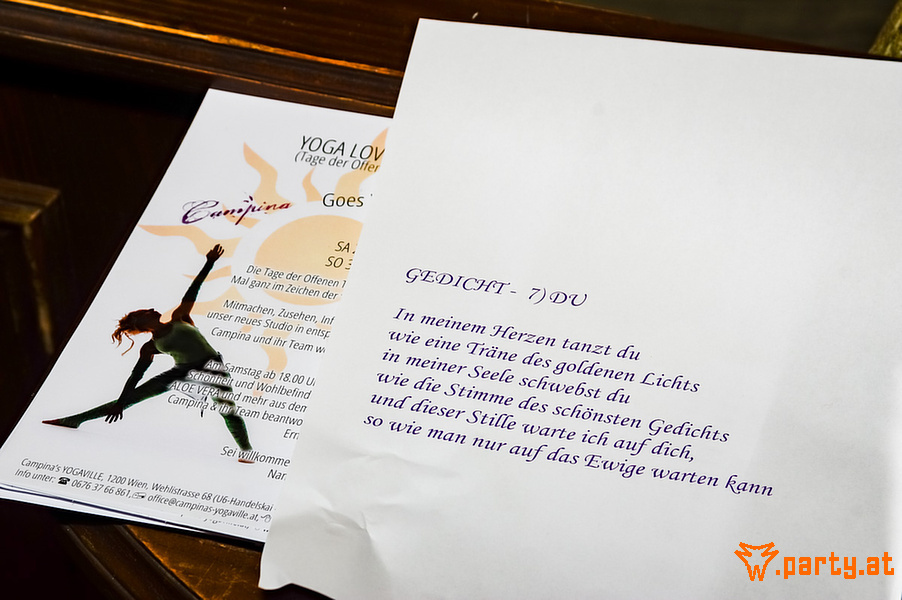 YOGA LOV
(Tage der Offen
Campina
Goes
SA
SO 3
Die Tage der Offenen
Mal ganz im Zeichen der
Mitmachen, Zusehen, Inf
unser neues Studio in entsp
Campina und ihr Team w
Am Samstag ab 18.00 U
Schönheit und Wohlbefind
ALOE VERA und mehr aus dem
Campina & ihr Team beantwo
Er
Sei willkomme
Na
Campina's YOGAVILLE, 1200 Wien, Wehlistrasse 68 (U6-Handelskai
Info unter: ☎ 0676 37 66 861, office@campinas-yogaville.at,
GEDICHT - 7) DU
In meinem Herzen tanzt du
wie eine Träne des goldenen Lichts
in meiner Seele schwebst du
wie die Stimme des schönsten Gedichts
und dieser Stille warte ich auf dich,
so wie man nur auf das Ewige warten kann
w.party.at